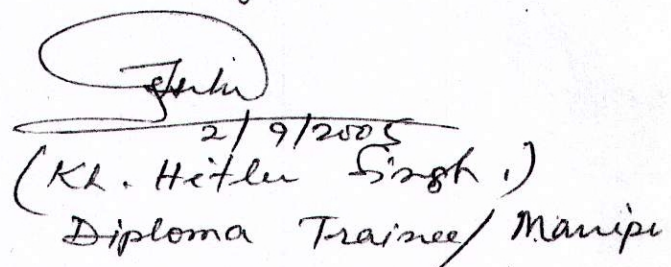 2/9/2005
(Kh. Hitler Singh.)
Diploma Trainee/ Manipu